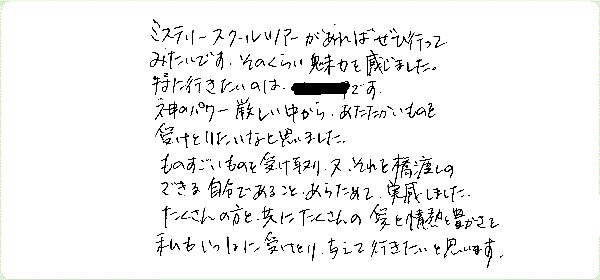 ミステリースクールツアーがあればぜひ行って
みたいです。そのくらい魅力を感じました。
特に行きたいのは、です。
神のパワー厳しい中から、あたたかいものを
受けとりたいなと思いました。
ものすごいものを受け取り、又、それを橋渡しの
できる自分であること、あらためて、実感しました。
たくさんの方と、共にたくさんの愛と情熱と豊かさを
私もいっしょに受けとり、与えて行きたいと思います。